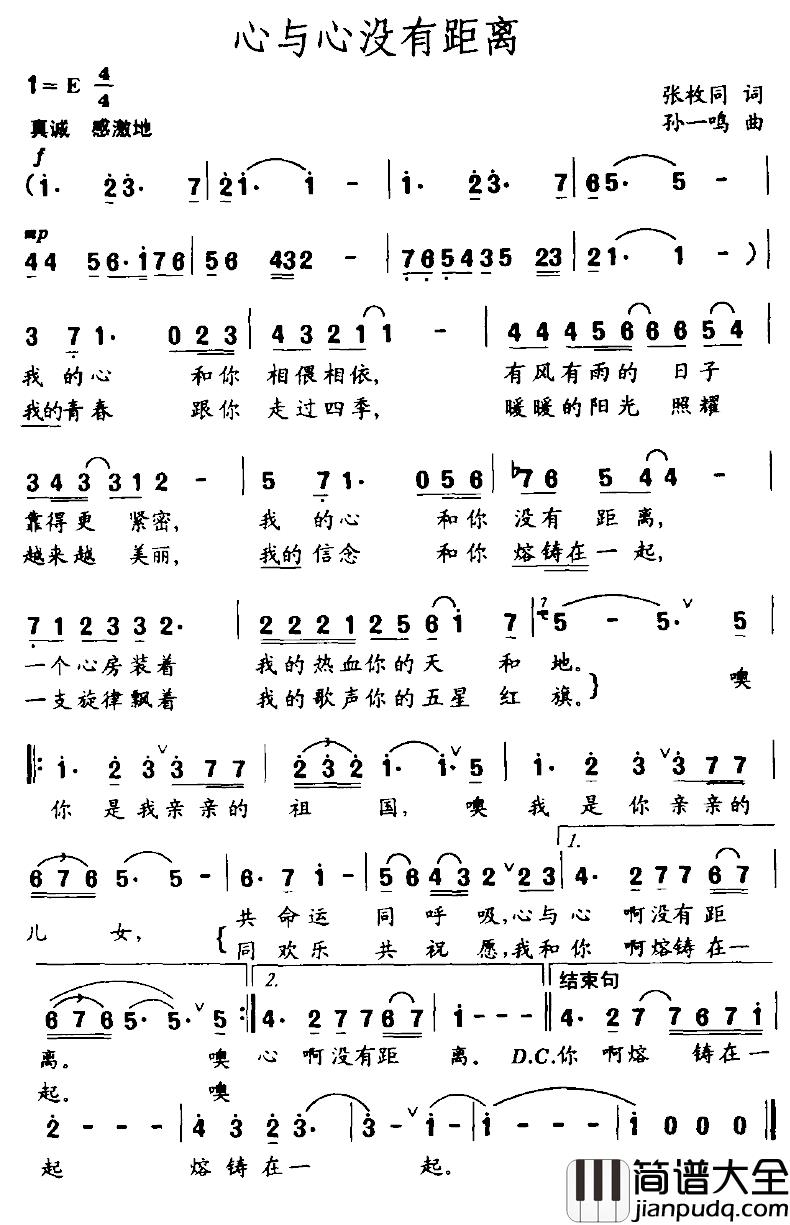 心与心没有距离
1=E 4/4
张枚同 词
真诚 感激地
孙一鸣 曲
f
(i. 23. 7 | 2i. i - | i. 23. 7 | 65. 5 - |
mp
44 56.i76 | 56 432 - | 765435 23 | 21. 1 - ) |
3 71. 023 | 432 1 1 - | 44456 6654 |
我 的心 和你 相偎相依, 有风有雨的 日子
我的青春 跟你 走过四季, 暖暖的阳光 照耀
343 312 - | 5 71. 056 | ♭76 5 44 - |
靠得更 紧密, 我 的心 和你 没有 距离,
越来越 美丽, 我的信念 和你 熔铸在一起,
712332. | 22212561 7 | 5 - 5. ∨ 5
一个心房装着 我的热血你的天 和 地。
一支旋律飘着 我的歌声你的五星 红 旗。 噢
‖: i. 2 3 ∨ 377 | 232 i. i ∨ 5 | i. 2 3 ∨ 377 |
你 是我亲亲的 祖 国, 噢 我 是 你 亲亲的
1.
676 5. 5 - | 6. 7 i - | 45643 2 ∨ 23 | 4. 27767 |
儿 女, 共命运 同呼 吸,心与心 啊没有距
同欢乐 共祝 愿,我和你 啊熔铸在一
2. 结束句
676 5. 5. ∨ 5 :‖ 4. 27767 | i - - - ‖ 4. 27767i |
离。 噢 心 啊没有距 离。 D.C.你 啊熔 铸在一
起。 噢
2 - - - | 4 3 23. | 3 - ∨ i - | i - - - | i 0 0 0 ‖
起 熔铸在一 起。
简谱大全
jianpudq.com